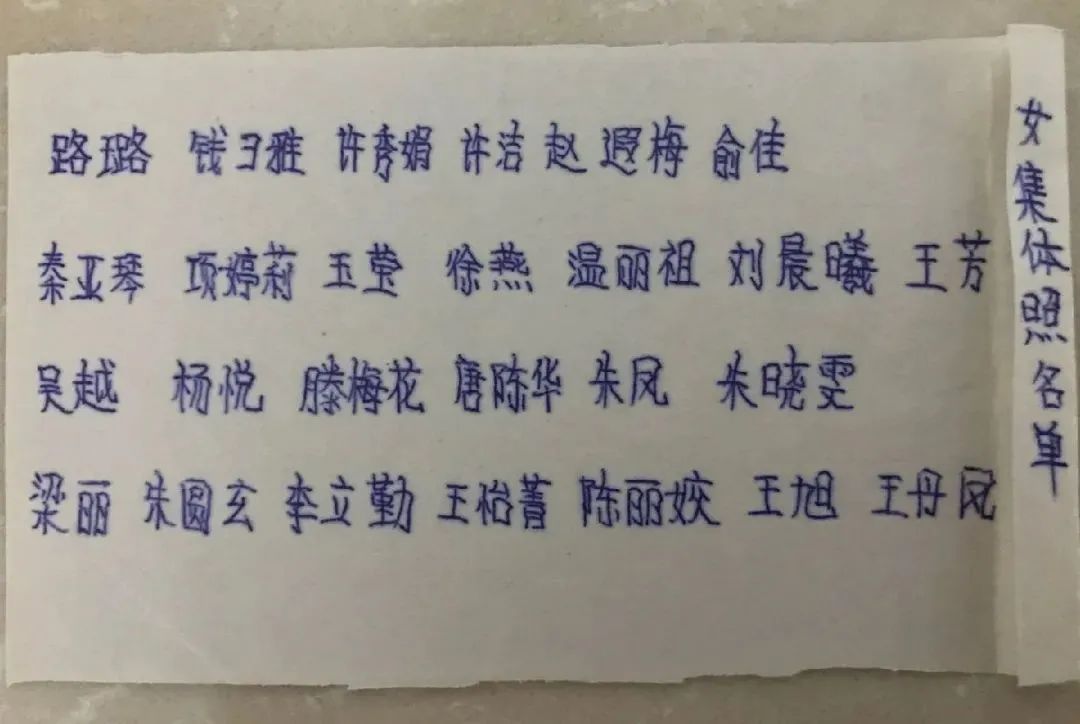 路璐 钱习雅 许秀娟 许洁 赵遐梅 俞佳
秦亚琴 项婷莉 王莹 徐燕 温丽祖 刘晨曦 王芳
吴越 杨悦 滕梅花 唐陈华 朱凤 朱晓雯
梁丽 朱圆玄 李立勤 王怡菁 陈丽姣 王旭 王丹凤
女集体照名单